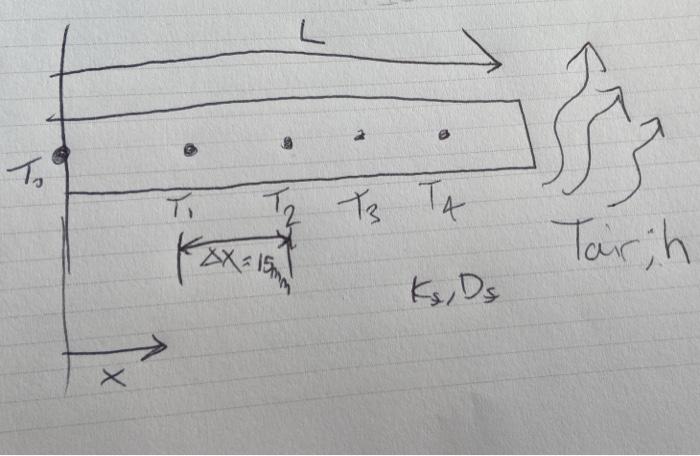 L
T₀
T₁ T₂ T₃ T₄
ΔX = 15mm
Tair, h
Ks, Ds
X